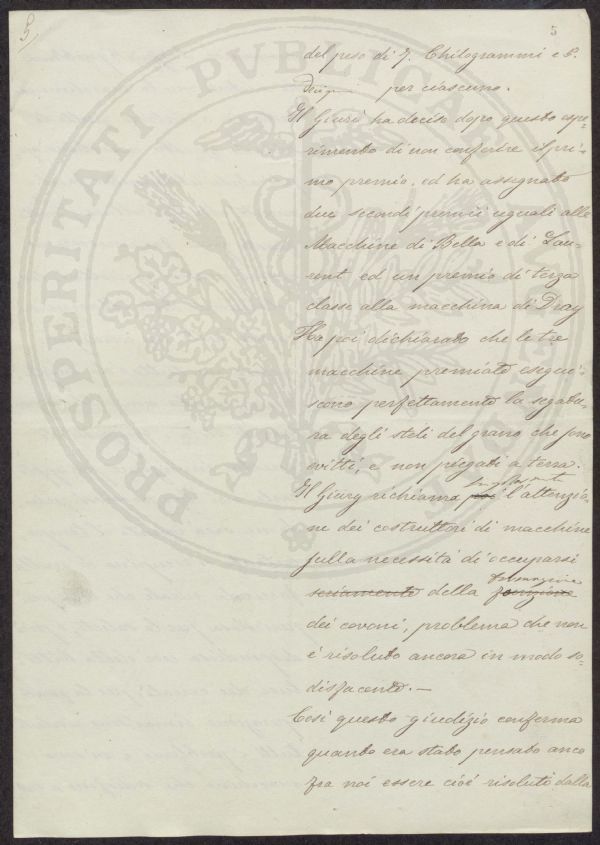 5
5
del peso di 7. Chilogrammi e 5.
per ciascuno.
Il Giurì ha deciso dopo questo espe-
rimento di non conferire il pri-
mo premio, ed ha assegnato
due secondi premii uguali alle
Macchine di Bella e di Lau-
rent ed un premio di terza
classe alla macchina di Dray
Ha poi dichiarato che le tre
macchine premiate esegui-
scono perfettamente la segatu-
ra degli steli del grano che sono
ritti, e non piegati a terra.
Il Giury richiama poi l'attenzio-
ne dei costruttori di macchine
sulla necessità di occuparsi
formazione
seriamente della funzione
dei covoni, problema che non
è risoluto ancora in modo so-
disfacente. —
Così questo giudizio conferma
quando era stato pensato anco
fra noi essere cioè risoluto dalla
PROSPERITATI PVBLICAE